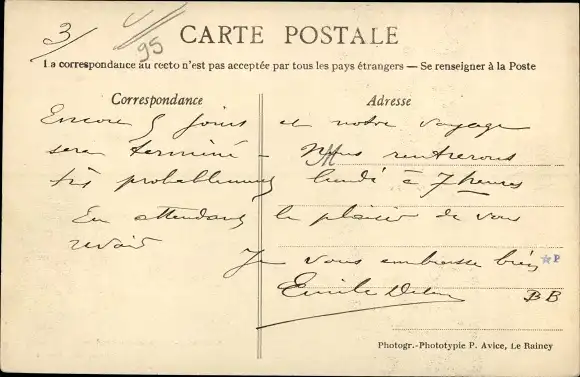 3/
95
CARTE POSTALE
La correspondance au recto n'est pas acceptée par tous les pays étrangers — Se renseigner à la Poste
Correspondance
Adresse
Encore 5 jours et notre voyage
sera terminé - Nous rentrerons
très probablement lundi à 7 heures
En attendant le plaisir de vous
revoir
Je vous embrasse bien
Emile
BB
P
Photogr.-Phototypie P. Avice, Le Raincy